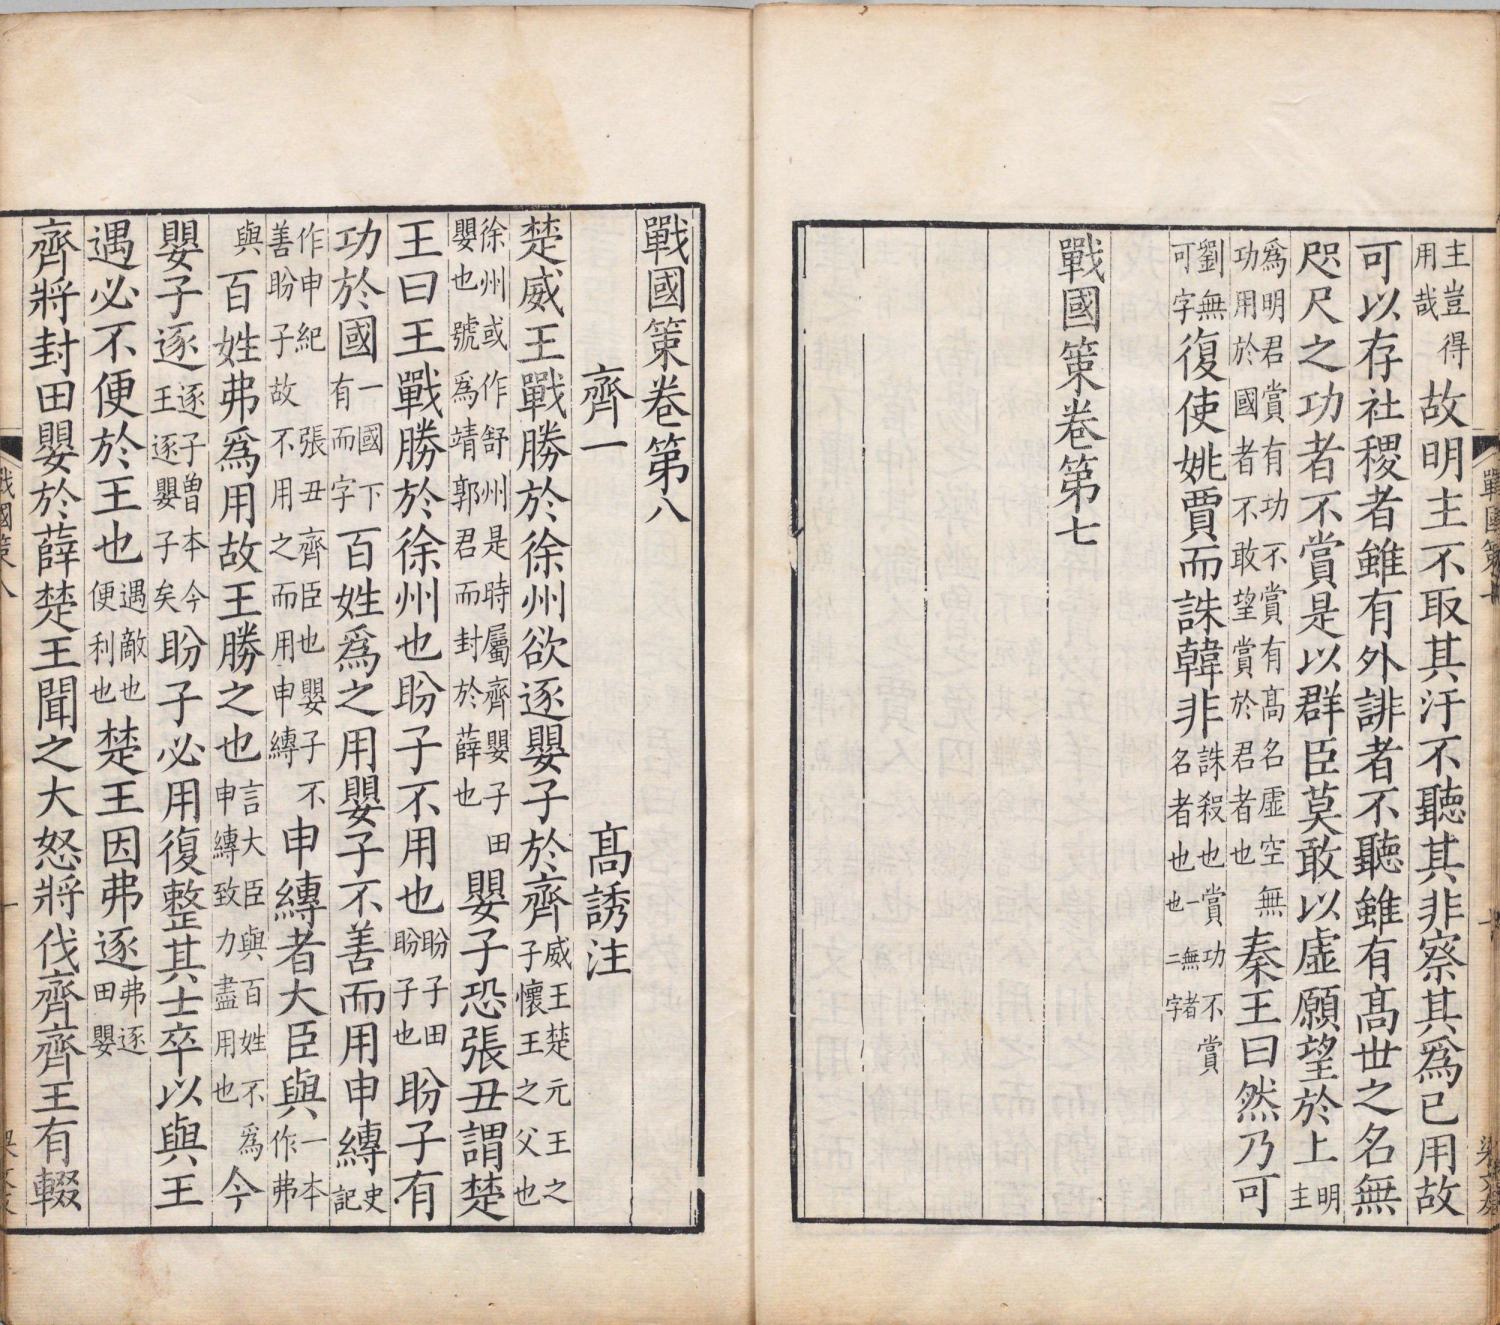 主豈得用哉故明主不取其汙不聽其非察其爲己用故
可以存社稷者雖有外誹者不聽雖有髙世之名無
咫尺之功者不賞是以群臣莫敢以虛願望於上明主
爲明君賞有功不賞有髙名虛空無功用於國者不敢望賞於君者也秦王曰然乃可
劉無可字復使姚賈而誅韓非誅殺也賞功不賞名者也一無者也二字
戰國策卷第七
戰國策卷第八
齊一 髙誘注
楚威王戰勝於徐州欲逐嬰子於齊威王楚元王之子懷王之父也
徐州或作舒州是時屬齊嬰子田嬰也號爲靖郭君而封於薛也嬰子恐張丑謂楚
王曰王戰勝於徐州也盼子不用也盼子田盼子也盼子有
功於國一國下有而字百姓爲之用嬰子不善而用申縛史記
作申紀張丑齊臣也嬰子不善盼子故不用之而用申縛申縛者大臣與一本作弗
與百姓弗爲用故王勝之也言大臣與百姓不爲申縛致力盡用也今
嬰子逐逐子曽本今王逐嬰子矣盼子必用復整其士卒以與王
遇必不便於王也遇敵也便利也楚王因弗逐弗逐田嬰
齊將封田嬰於薛楚王聞之大怒將伐齊齊王有輟
戰國策八 一